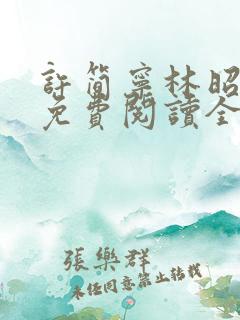 許簡寧林昭
免費閱讀全
張樂群
未经同意禁止转载